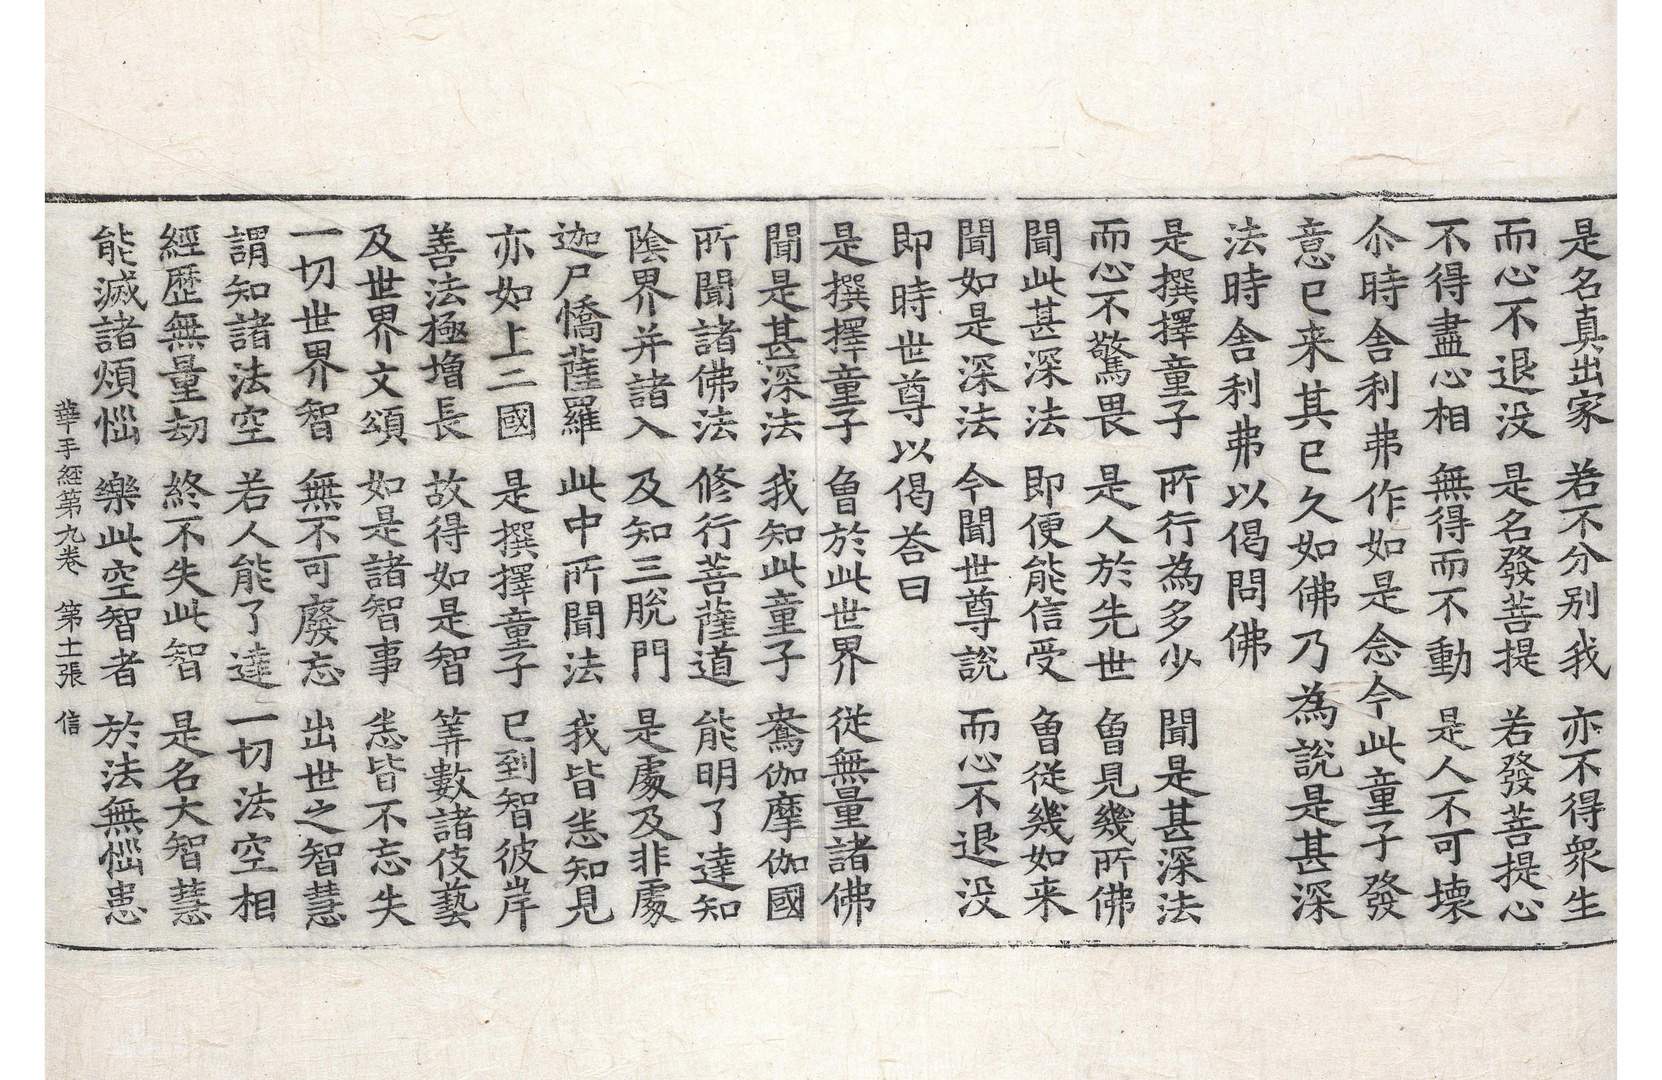 是名真出家 若不分别我 亦不得衆生
而心不退没 是名發菩提 若發菩提心
不得盡心相 無得而不動 是人不可壞
尒時舍利弗作如是念今此童子發
意已来其已久如佛乃為說是甚深
法時舍利弗以偈問佛
是撰擇童子 所行為多少 聞是甚深法
而心不驚畏 是人於先世 曾見幾所佛
聞此甚深法 即便能信受 曾從幾如来
聞如是深法 今聞世尊說 而心不退没
即時世尊以偈荅曰
是撰擇童子 曾於此世界 從無量諸佛
聞是甚深法 我知此童子 鴦伽摩伽國
所聞諸佛法 修行菩薩道 能明了達知
陰界并諸入 及知三脫門 是處及非處
迦尸憍薩羅 此中所聞法 我皆悉知見
亦如上二國 是撰擇童子 已到智彼岸
善法極增長 故得如是智 筭數諸伎藝
及世界文頌 如是諸智事 悉皆不忘失
一切世界智 無不可廢忘 出世之智慧
謂知諸法空 若人能了達 一切法空相
經歷無量劫 終不失此智 是名大智慧
能滅諸煩惱 樂此空智者 於法無惱患
華手經第九卷 第十二張 信